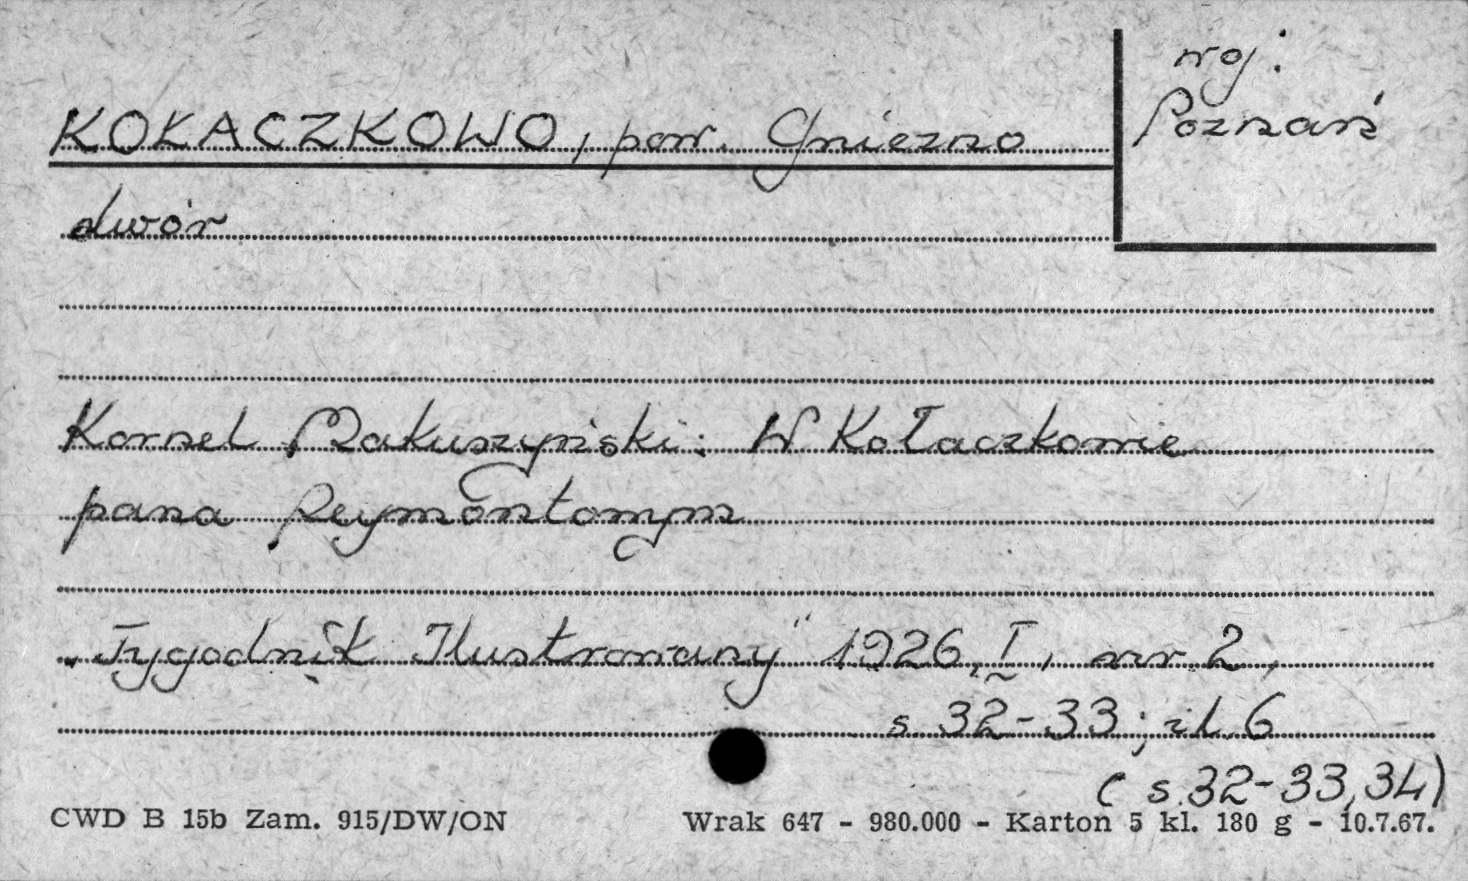 woj:
Poznań
KOŁACZKOWO, pow. Gniezno
dwór
Kornel Makuszyński: W Kołaczkowie
pana Reymontowym
„Tygodnik Ilustrowany" 1926, I, nr 2,
s. 32-33; il. 6
(s. 32-33, 34)
CWD B 15b Zam. 915/DW/ON Wrak 647 - 980.000 - Karton 5 kl. 180 g - 10.7.67.